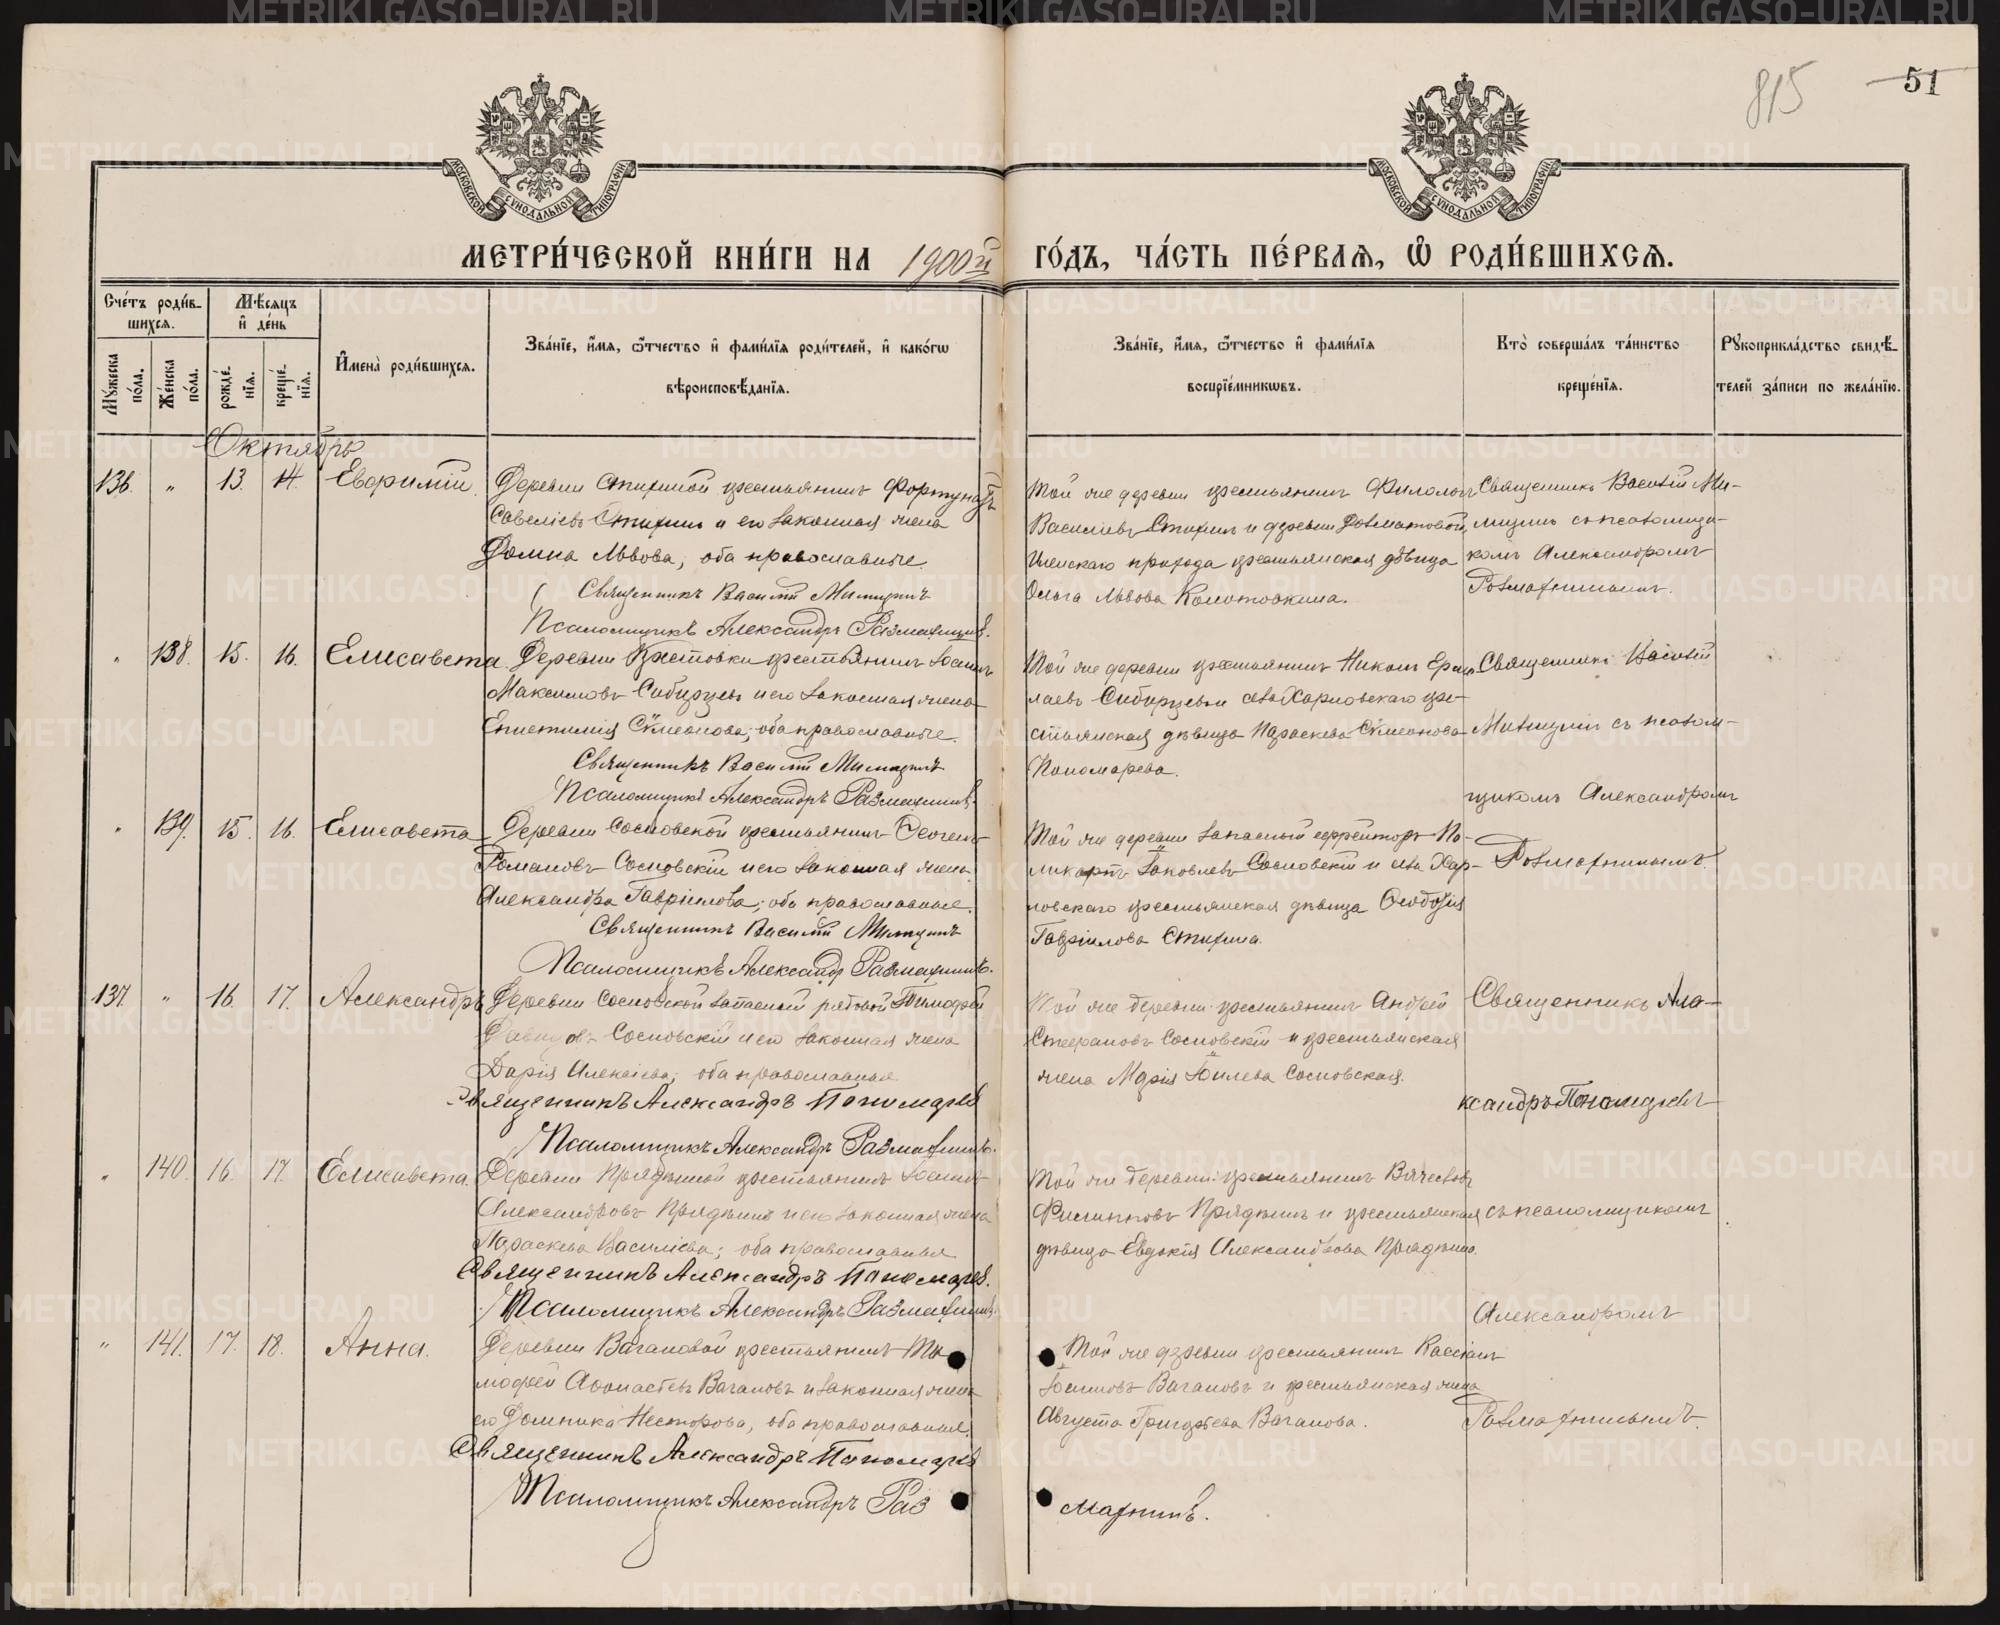 815
51
МОСКОВСКОЙ СУНОДАЛЬНОЙ ТИПОГРАФІИ
МОСКОВСКОЙ СУНОДАЛЬНОЙ ТИПОГРАФІИ
МЕТРИ́ЧЕСКОЙ КНИ́ГИ НА 1900й ГО́ДЪ, ЧА́СТЬ ПЕ́РВАѦ, Ѡ҆ РОДИ́ВШИХСѦ.
Сче́тъ роди́в-
шихсѧ.
Мꙋ́жеска по́ла.
Же́нска по́ла.
Мѣ́сѧцъ
и҆ де́нь
рожде́нїѧ.
креще́нїѧ.
И҆мена̀ роди́вшихсѧ.
Зва́нїе, и҆́мѧ, ѻ҆́тчество и҆ фами́лїѧ роди́телей, и҆ како́гѡ
вѣроисповѣ́данїѧ.
Зва́нїе, и҆́мѧ, ѻ҆́тчество и҆ фами́лїѧ
воспрїе́мникѡвъ.
Кто̀ соверша́лъ та́инство
креще́нїѧ.
Рꙋкоприкла́дство свидѣ́-
телей за́писи по жела́нїю.
Октябрь
136. " 13. 14. Евѳимій.
Деревни Стихиной крестьянинъ Фортунатъ
Савеліевъ Стихинъ и его законная жена
Домна Львова, оба православные.
Священникъ Василій
Псаломщикъ Александръ Размахнинъ.
Той же деревни крестьянинъ Филологъ
Василіевъ Стихинъ и деревни
прихода крестьянская дѣвица
Ольга Львова
Священникъ Василій Ми-
съ псаломщи-
комъ Александромъ
Размахнинымъ.
" 138. 15. 16. Елисавета.
Деревни крестьянинъ Іоаннъ
Максимовъ и его законная жена
Епистимія Сѵмеонова; оба православные.
Священникъ Василій
Псаломщикъ Александръ Размахнинъ.
Той же деревни крестьянинъ
лаевъ и села Харловскаго кре-
стьянская дѣвица Параскева Сѵмеонова
Пономарева.
Священникъ Василій
съ псалом-
щикомъ Александромъ
Размахнинымъ.
" 139. 15. 16. Елисавета
Деревни Сосновской крестьянинъ
Романовъ Сосновскій и его законная жена
Александра Гавріилова; оба православные.
Священникъ Василій
Псаломщикъ Александръ Размахнинъ.
Той же деревни запасный ефрейторъ По-
ликарпъ Іаковлевъ Сосновскій и села Хар-
ловскаго крестьянская дѣвица Ѳеодосія
Гавріилова Стихина.
137. " 16. 17. Александръ
Деревни Сосновской запасный рядовой Тимофей
Давидовъ Сосновскій и его законная жена
Дарія Алексіева; оба православные
Священникъ Александръ Пономаревъ
Псаломщикъ Александръ Размахнинъ.
Той же деревни крестьянинъ Андрей
Стефановъ Сосновскій и крестьянская
жена Марія Сосновская.
Священникъ Але-
ксандръ Пономаревъ
" 140. 16. 17. Елисавета.
Деревни Прядеиной крестьянинъ Іоаннъ
Александровъ Прядеинъ и его законная жена
Параскева Василіева; оба православные
Священникъ Александръ Пономаревъ.
Псаломщикъ Александръ Размахнинъ.
Той же деревни крестьянинъ Вячеславъ
Филипповъ Прядеинъ и крестьянская
дѣвица Евдокія Александрова Прядеина.
съ псаломщикомъ
Александромъ
Размахнинымъ.
" 141. 17. 18. Анна.
Деревни Вагановой крестьянинъ Ти-
мофей Вагановъ и законная жена
его Домника Несторова, оба православные.
Священникъ Александръ Пономаревъ
Псаломщикъ Александръ Размахнинъ.
Той же деревни крестьянинъ Кассіанъ
Іоанновъ Вагановъ и крестьянская жена
Августа Григорьева Ваганова.
METRIKI.GASO-URAL.RU